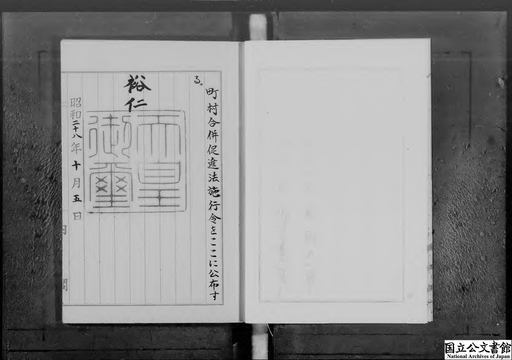 町村合併促進法施行令をここに公布す
る。
裕仁
天皇
御璽
昭和二十八年十月五日
国立公文書館
National Archives of Japan